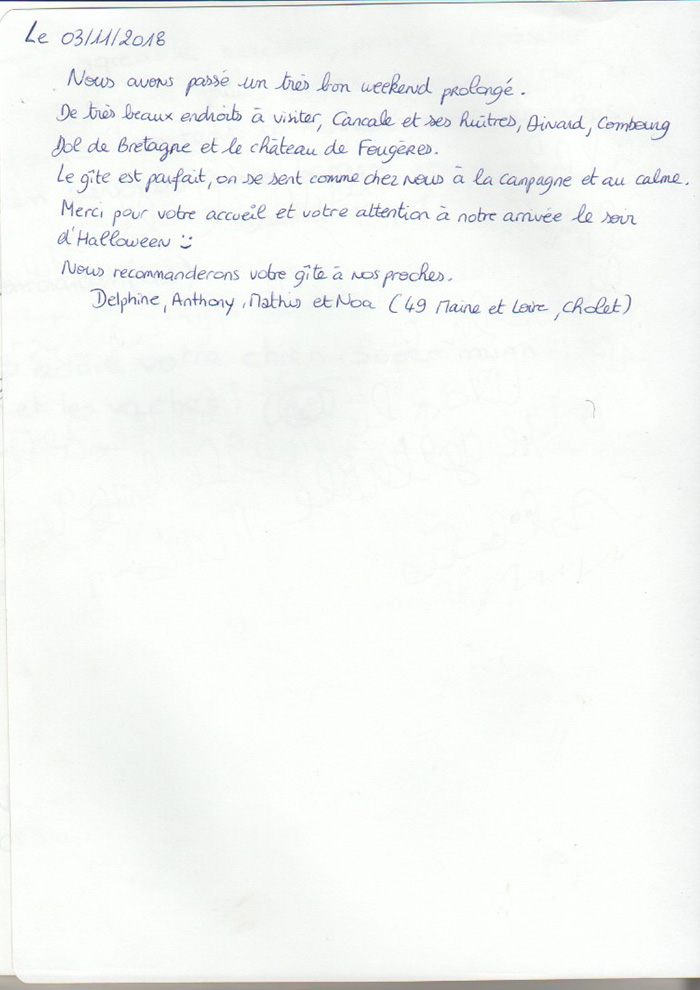 Le 03/11/2018
Nous avons passé un très bon weekend prolongé.
De très beaux endroits à visiter, Cancale et ses huîtres, Dinard, Combourg
Dol de Bretagne et le château de Fougères.
Le gîte est parfait, on se sent comme chez nous à la campagne et au calme.
Merci pour votre accueil et votre attention à notre arrivée le soir
d'Halloween :)
Nous recommanderons votre gîte à nos proches.
Delphine, Anthony, Mathis et Noa (49 Maine et Loire, Cholet)